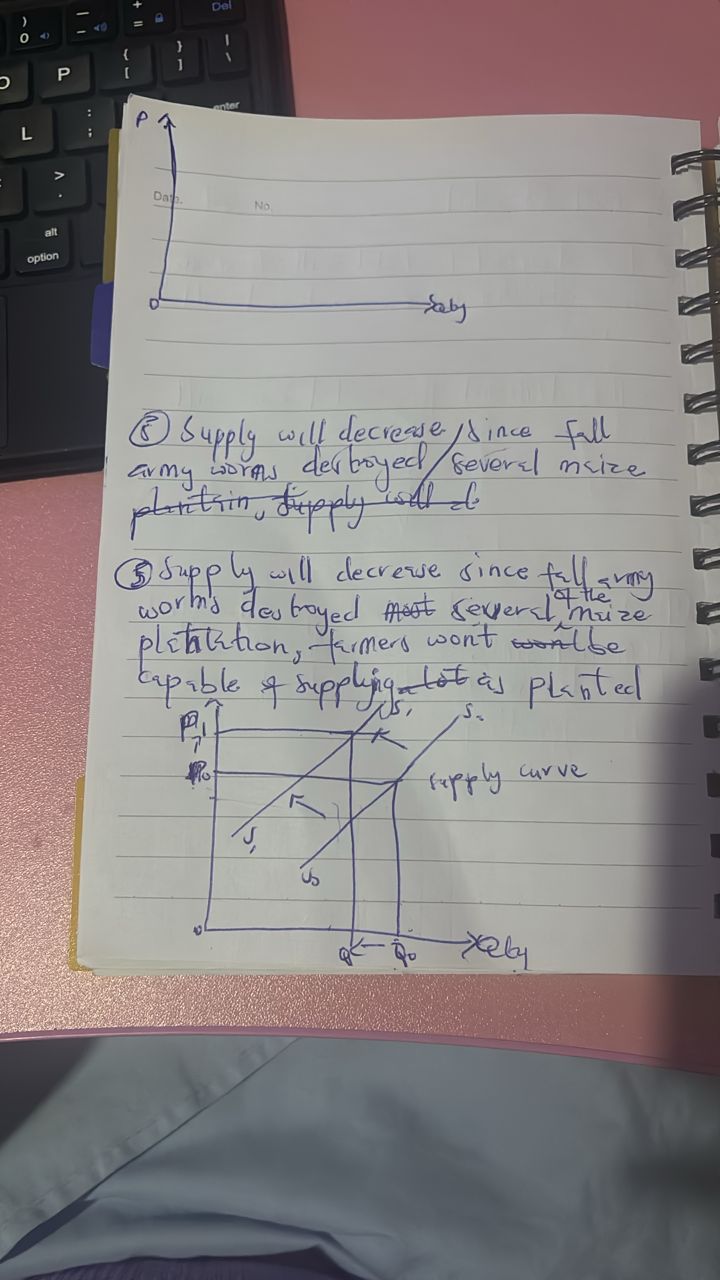 Del
)
0
—
-
+
=
O
P
{
[
}
]
|
\
L
:
;
enter
>
.
alt
option
P
Date.
No.
0
Qty
5 Supply will decrease since fall
army worms destroyed several maize
plantain, supply will d
5 Supply will decrease since fall army
worms destroyed most several of the maize
plantation, farmers wont wont be
capable of supplying lot as planted
P1
S1
S0
P0
supply curve
S1
S0
0
Q
Q0
Qty